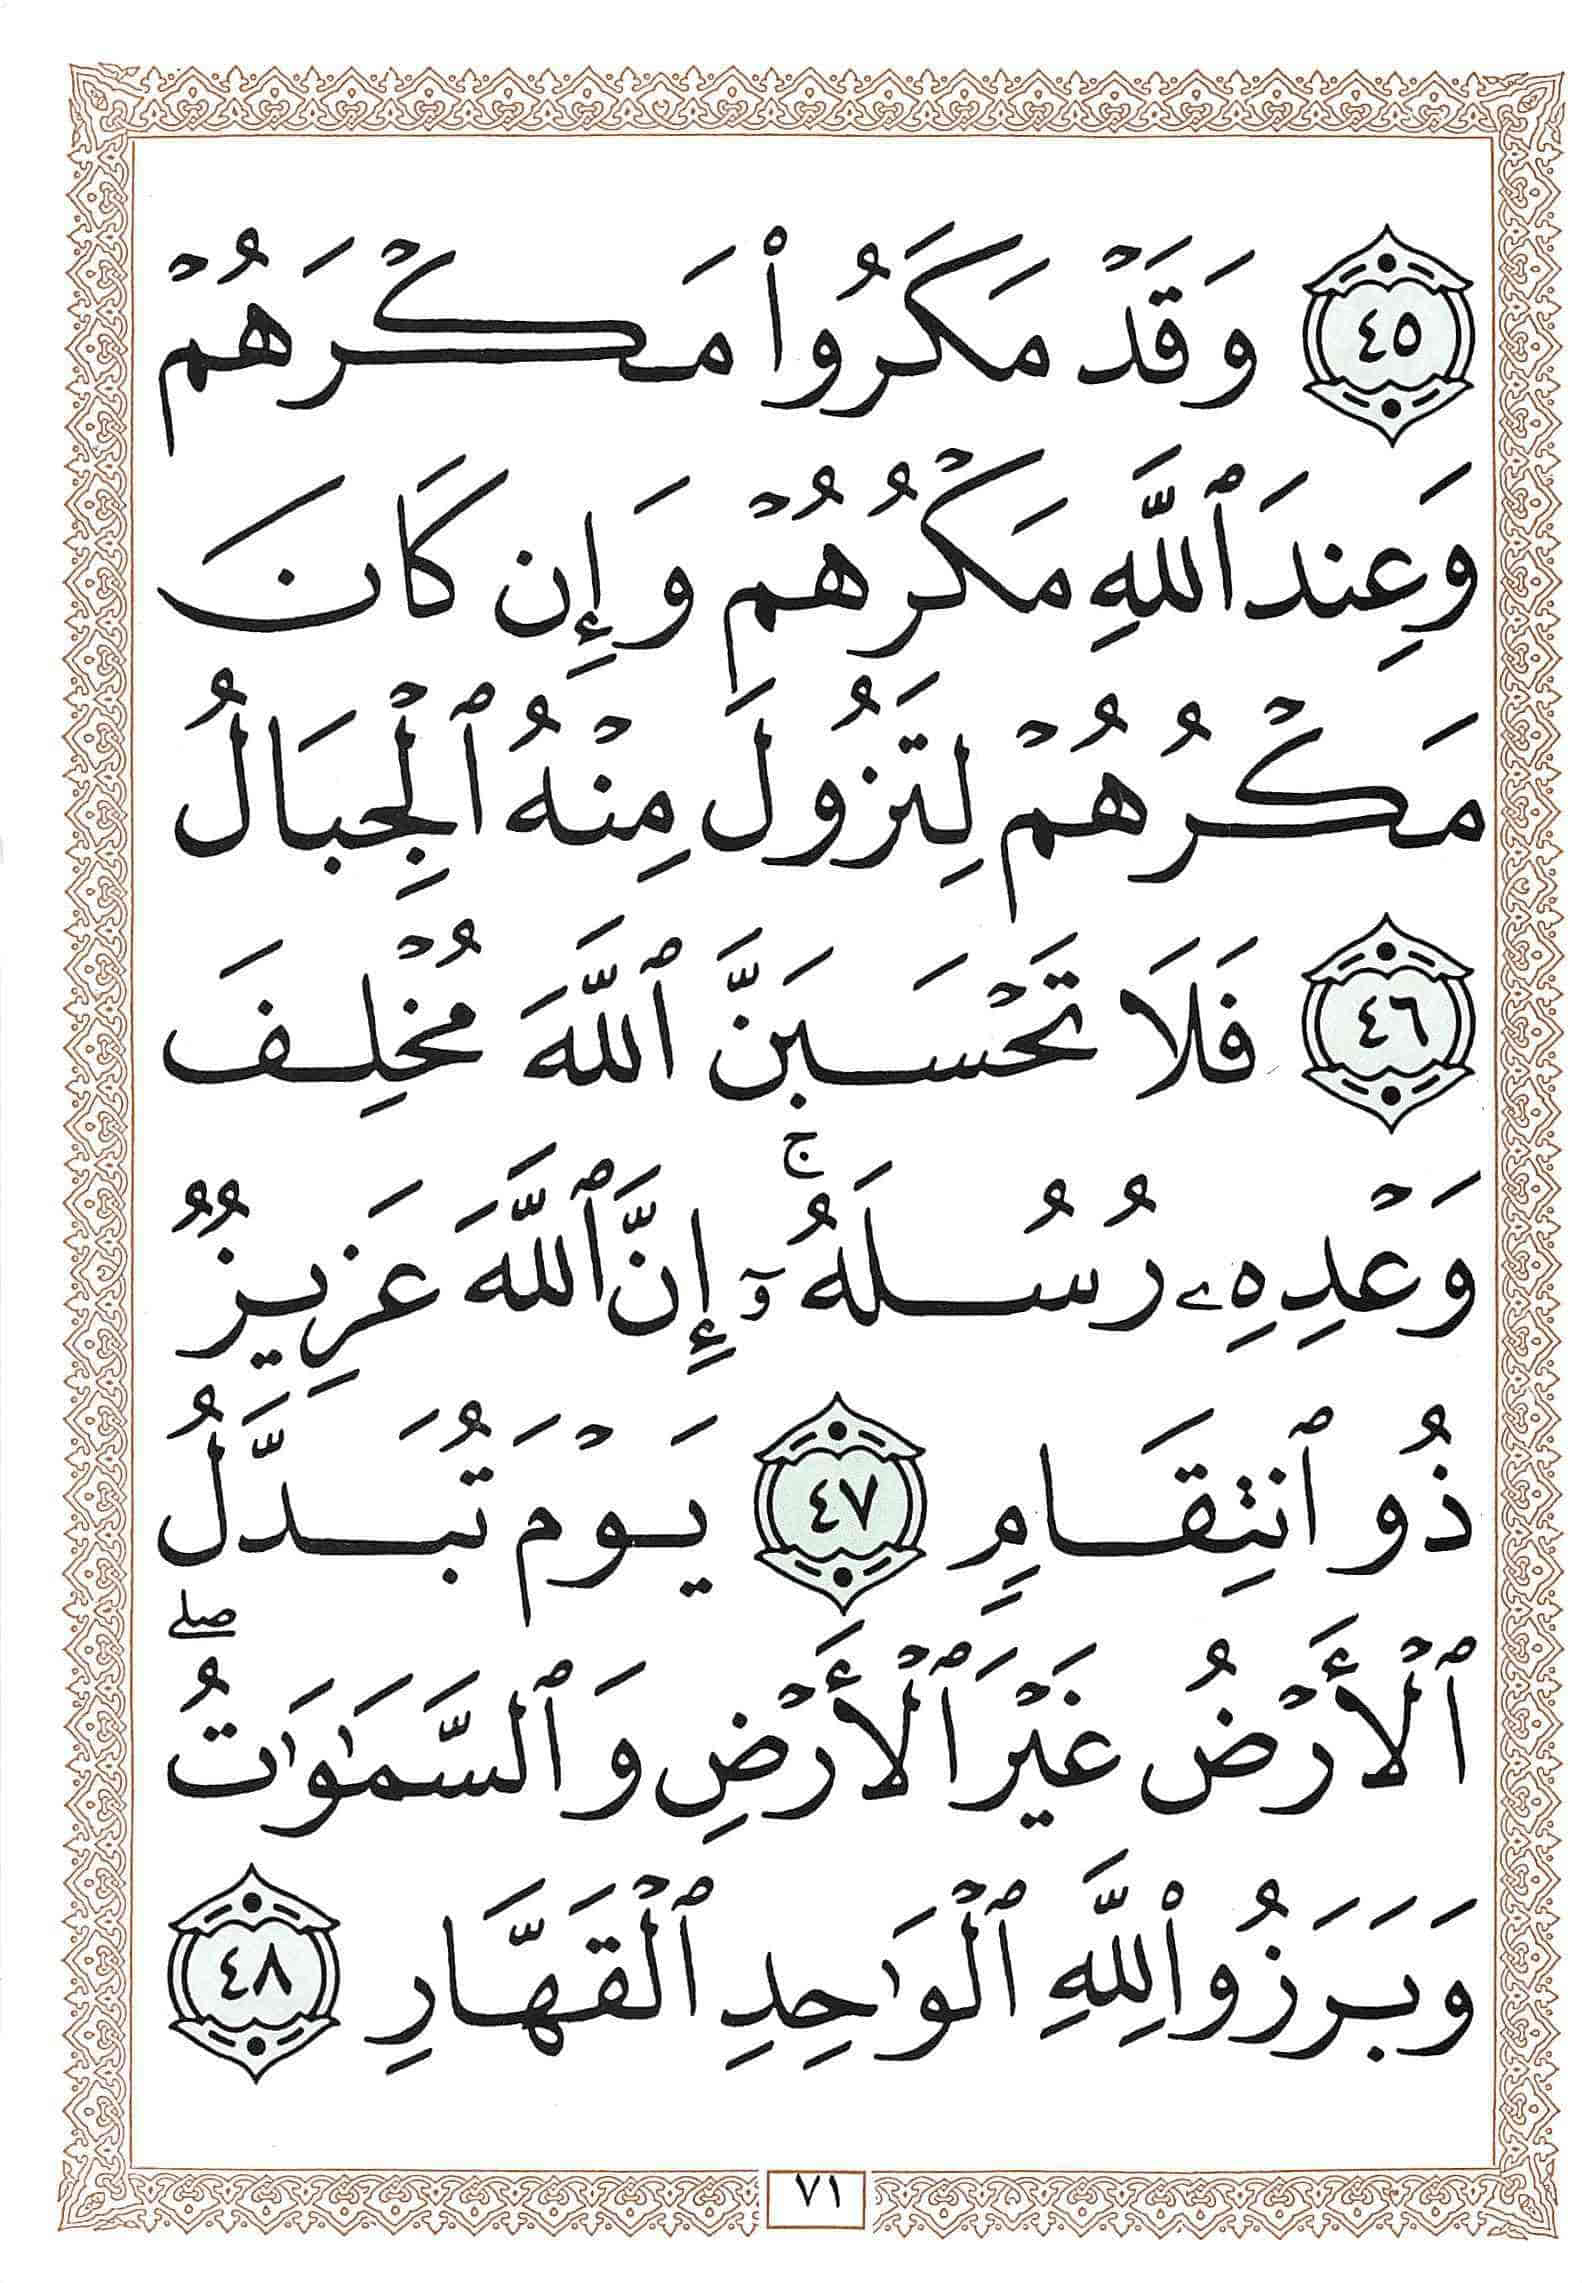 ٤٥ وَقَدْ مَكَرُوا۟ مَكْرَهُمْ
وَعِندَ ٱللَّهِ مَكْرُهُمْ وَإِن كَانَ
مَكْرُهُمْ لِتَزُولَ مِنْهُ ٱلْجِبَالُ
٤٦ فَلَا تَحْسَبَنَّ ٱللَّهَ مُخْلِفَ
وَعْدِهِۦ رُسُلَهُۥٓ ۚ إِنَّ ٱللَّهَ عَزِيزٌ
ذُو ٱنتِقَامٍ ٤٧ يَوْمَ تُبَدَّلُ
ٱلْأَرْضُ غَيْرَ ٱلْأَرْضِ وَٱلسَّمَٰوَٰتُ ۖ
وَبَرَزُوا۟ لِلَّهِ ٱلْوَٰحِدِ ٱلْقَهَّارِ ٤٨
٧١